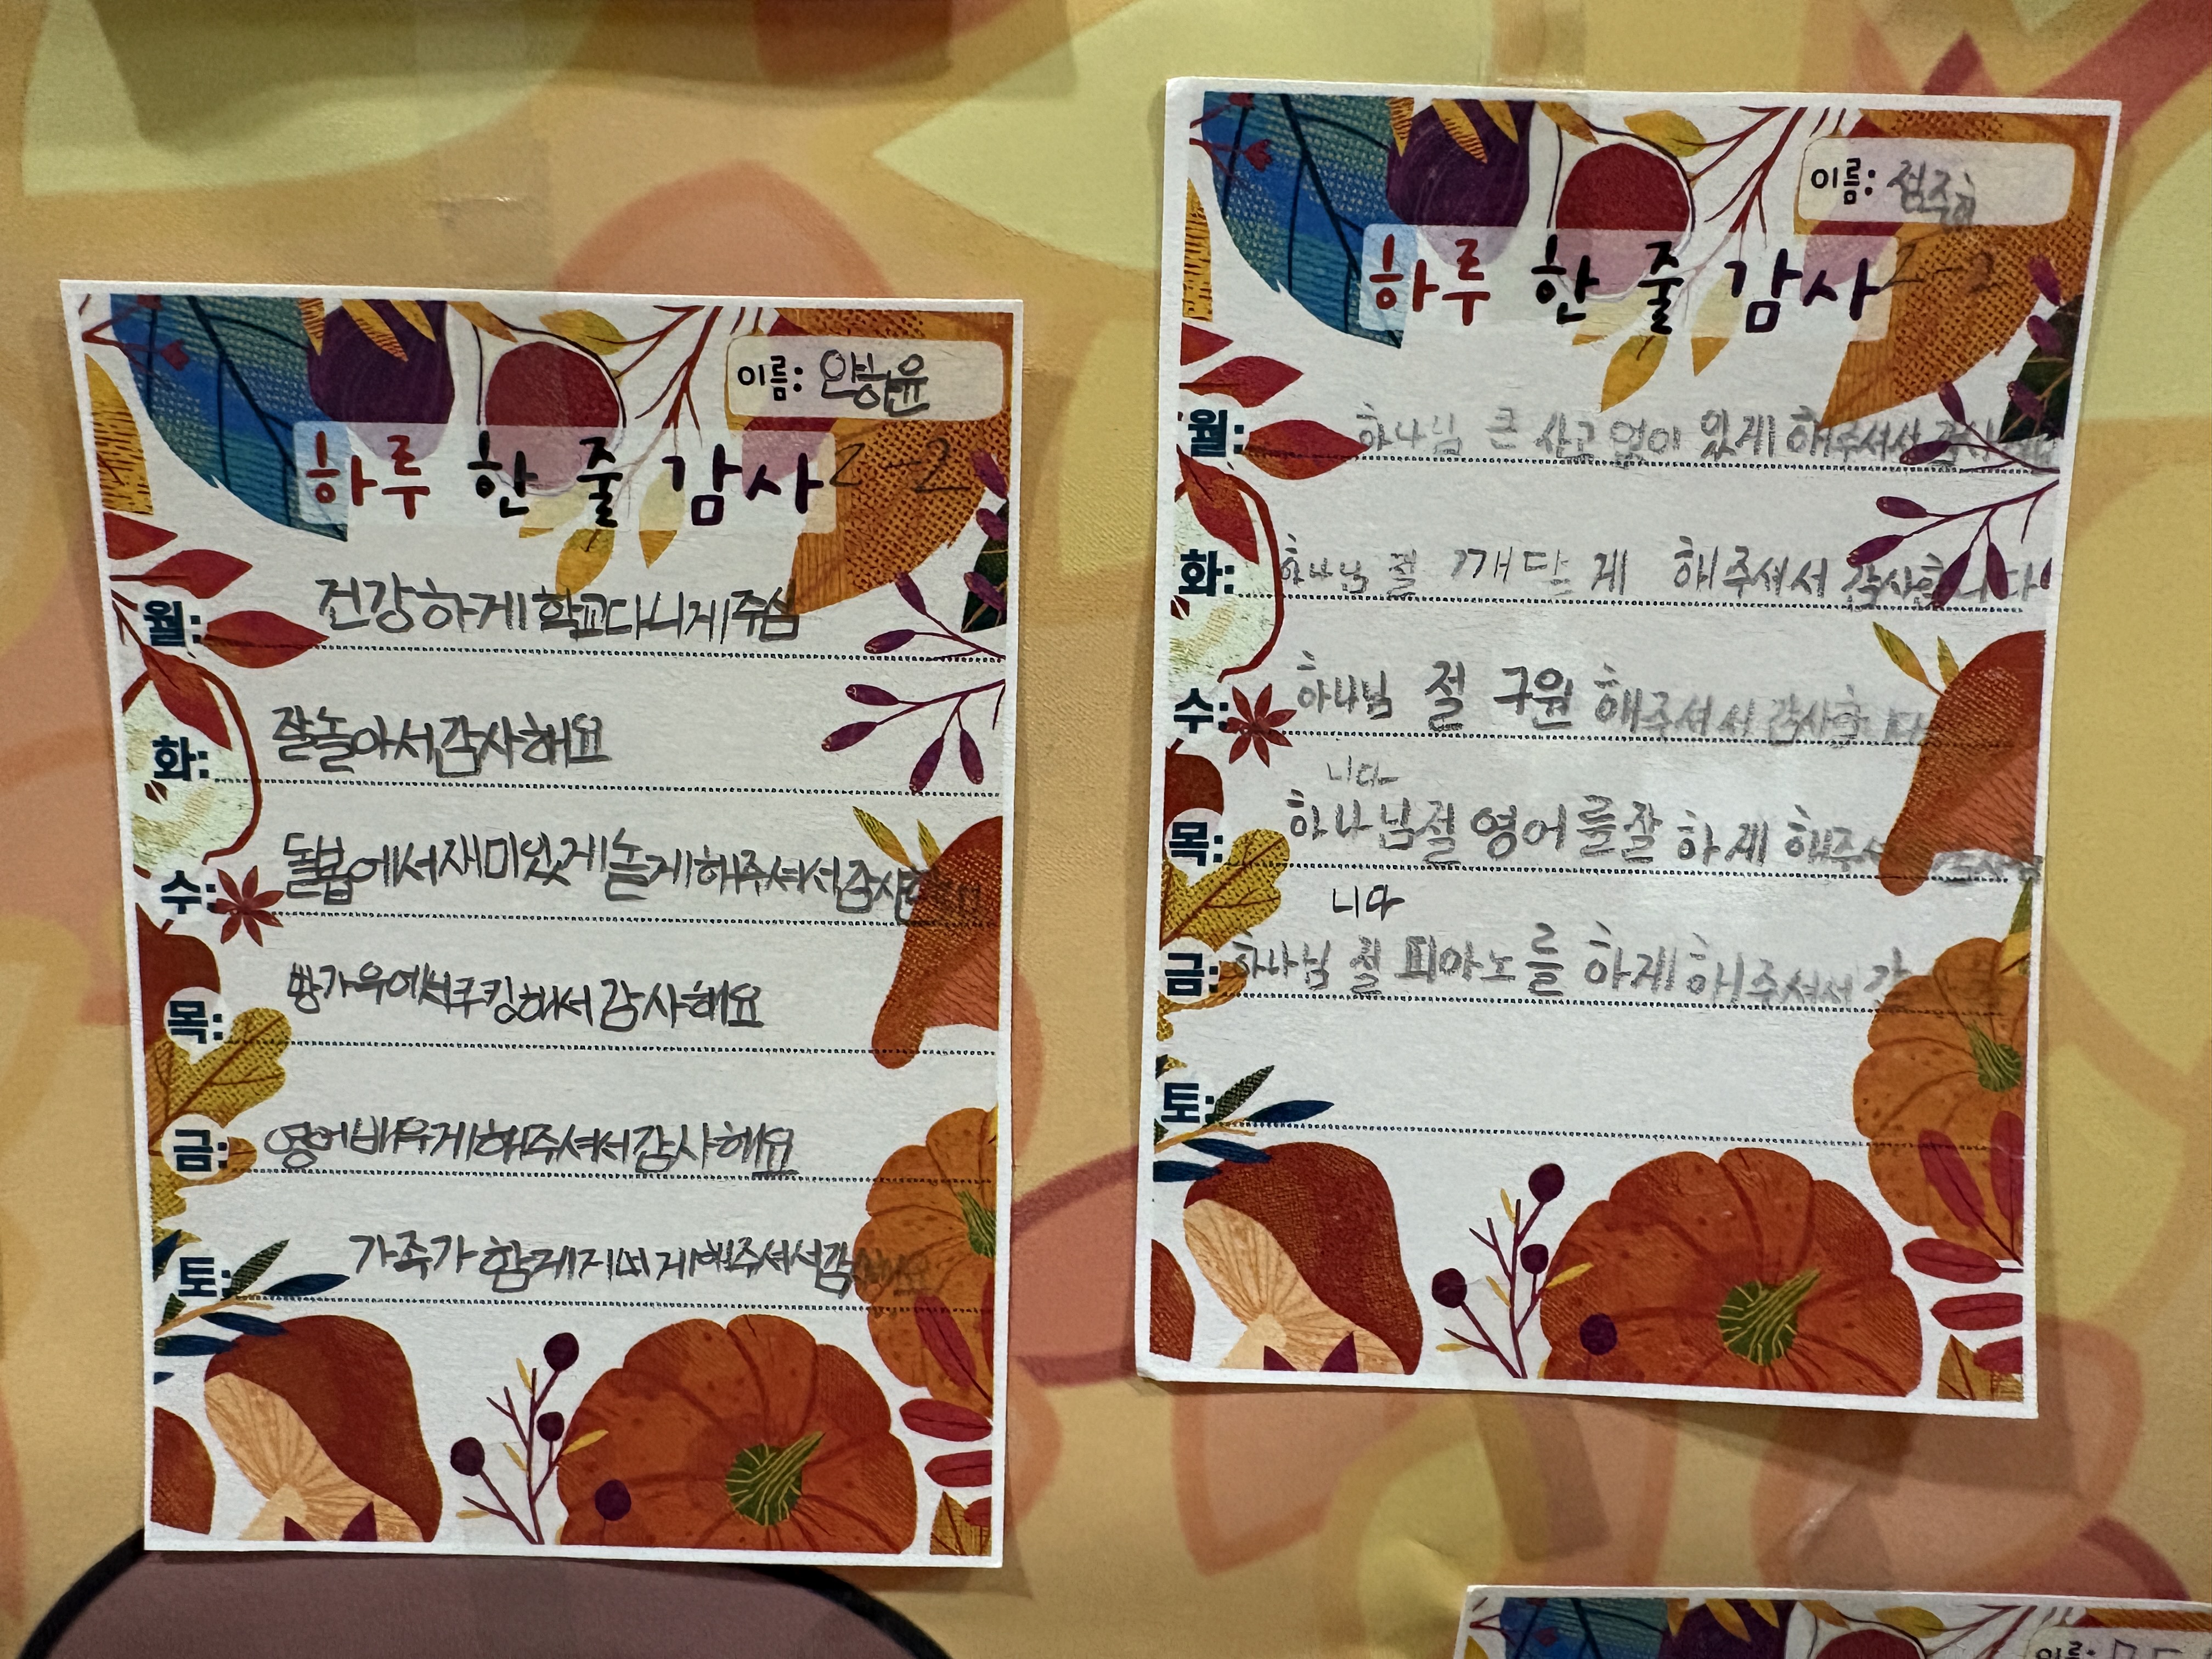 이름: 안승윤
하루 한 줄 감사 2-2
월: 건강하게 학교다니게 주심
화: 잘놀아서 감사해요
수: 돌봄에서 재미있게 놀게 해주셔서 감사
목: 방가우에서 쿠킹해서 감사해요
금: 영어 배우게 해주셔서 감사해요
토: 가족가 함께 지내게 해주셔서 감
이름:
하루 한 줄 감사 2-2
월: 하나님 큰 사고 없이 있게 해주셔서 감사
화: 하나님 절 깨닫게 해주셔서 감사합니다
수: 하나님 절 구원 해주셔서 감사합
니다
목: 하나님 절 영어를 잘 하게 해주셔
니다
금: 하나님 절 피아노를 하게 해주셔서 감
토:
이름: